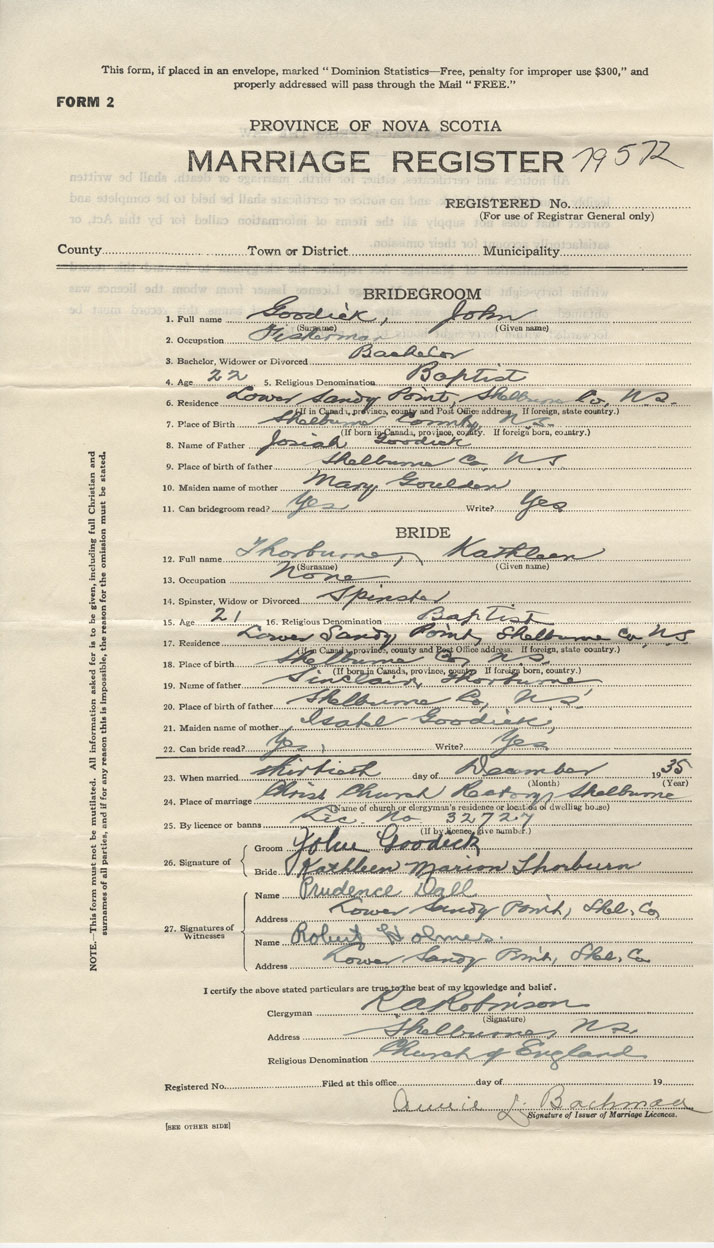 This form, if placed in an envelope, marked "Dominion Statistics—Free, penalty for improper use $300," and
properly addressed will pass through the Mail "FREE."
FORM 2
PROVINCE OF NOVA SCOTIA
MARRIAGE REGISTER 79572
REGISTERED No.
(For use of Registrar General only)
County Town or District Municipality
BRIDEGROOM
1. Full name Goodick, John
(Surname) (Given name)
2. Occupation Fisherman
3. Bachelor, Widower or Divorced Bachelor
4. Age 22 5. Religious Denomination Baptist
6. Residence Lower Sandy Point, Shelburne Co, N.S.
(If in Canada, province, county and Post Office address. If foreign, state country.)
7. Place of Birth Shelburne County N.S.
(If born in Canada, province, county. If foreign born, country.)
8. Name of Father Josiah Goodick
9. Place of birth of father Shelburne Co. N.S
10. Maiden name of mother Mary Goulden
11. Can bridegroom read? Yes Write? Yes
BRIDE
12. Full name Thorburne, Kathleen
(Surname) (Given name)
13. Occupation None
14. Spinster, Widow or Divorced Spinster
15. Age 21 16. Religious Denomination Baptist
17. Residence Lower Sandy Point, Shelburne Co, N.S
(If in Canada, province, county and Post Office address. If foreign, state country.)
18. Place of birth Shelburne Co, N.S.
(If born in Canada, province, county. If foreign born, country.)
19. Neme of father Sinclair, Thorburne
20. Place of birth of father Shelburne Co, N.S.
21. Maiden name of mother Isabel Goodick,
22. Can bride read? Yes Write? Yes
23. When married thirtieth day of December 1935
(Month) (Year)
24. Place of marriage Christ Church Rectory, Shelburne
(Name of church or clergyman's residence or location of dwelling house)
25. By licence or banns Lic. No. 32727
(If by licence, give number.)
26. Signature of Groom John Goodick
Bride Kathleen Marion Thorburn
27. Signatures of Witnesses
Name Prudence Dall
Address Lower Sandy Point, Shel, Co,
Name Robert Holmes.
Address Lower Sandy Point, Shel, Co
I certify the above stated particulars are true to the best of my knowledge and belief.
Clergyman R A Robinson
(Signature)
Address Shelburne, N.S.
Religious Denomination Church of England
Registered No. Filed at this office day of 19
Annie L. Bachman
Signature of Issuer of Marriage Licences.
[SEE OTHER SIDE]
NOTE.—This form must not be mutilated. All information asked for is to be given, including full Christian and
surnames of all parties, and if for any reason this is impossible, the reason for the omission must be stated.